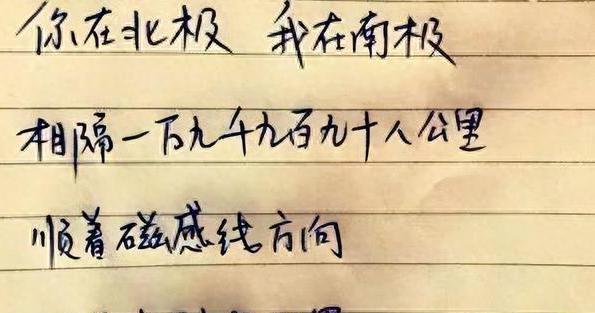 你在北极 我在南极
相隔一万九千九百九十八公里
顺着磁感线方向